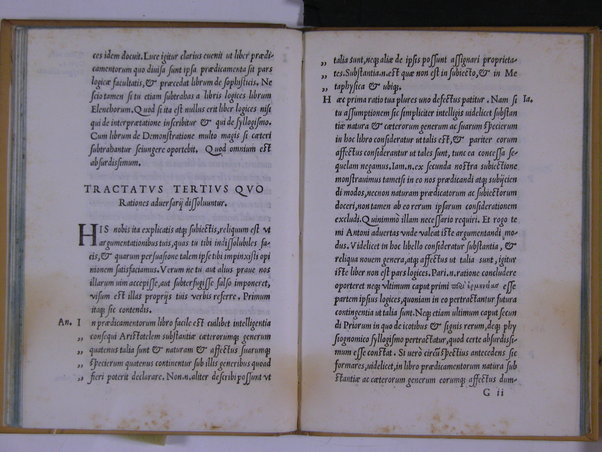 ces idem docuit. Luce igitur clarius euenit ut liber prædi-
camentorum quo diuisa sunt ipsa prædicamenta sit pars
logicæ facultatis, & præcedat librum de sophisticis. Ne
scio tamen si tu etiam subtrabas a libris logices librum
Elenchorum. Quod si ita est nullus erit liber logices nisi
qui de interpretatione inscribitur & qui de syllogismo.
Cum librum de Demonstratione multo magis si cæteri
subtrabantur seiungere oportebit. Quod omnium est
absurdissimum.
TRACTATVS TERTIVS QVO
Rationes aduersarij dissoluuntur.
HIS nobis ita explicatis atq; subiectis, reliquum est vt
argumentationibus tuis, quas tu tibi indissolubiles fa-
cis, & quarum persuasione talem ipse tibi impinxisti opi
nionem satisfaciamus. Verum ne tu aut alius praue nos
illarum uim accepisse, aut subterfugisse salso imponeret,
visum est illas proprijs tuis verbis referre. Primum
itaq; sic contendis.
An. I n prædicamentorum libro facile est cuilibet intelligentia
„ consequi Aristotelem substantiæ cæterorumq; generum
„ quatenus talia sunt & naturam & affectus suarumq;
„ specierum quatenus continentur sub illis generibus quoad
„ fieri poterit declarare. Non.n.aliter describi possunt vt
„ talia sunt, neq; aliæ de ipsis possunt assignari proprieta-
„ tes. Substantia.n.est quæ non est in subiecto, & in Me
„ taphysica & ubiq;.
H æc prima ratio tua plures uno defectus patitur. Nam si Ia.
tu assumptionem sic simpliciter intelligis uidelicet substan
tiæ natura & cæterorum generum ac suarum specierum
in hoc libro consideratur ut talis est, & pariter eorum
affectus considerantur ut tales sunt, tunc ea concessa se-
quelam negamus. Iam.n.ex secunda nostra subiectione
monstrauimus tametsi in eo nos prædicandi atq; subijcien
di modos, necnon naturam prædicatorum ac subiectorum
doceri, non tamen ab eo rerum ipsarum considerationem
excludi. Quinimmo illam necessario requiri. Et rogo te
mi Antoni aduertas vnde valeat iste argumentandi mo-
dus. Videlicet in hoc libello consideratur substantia, &
reliqua nouem genera, atq; affectus ut talia sunt, igitur
iste liber non est pars logices. Pari.n.ratione concludere
oporteret neq; vltimum caput primi esse
partem ipsius logices, quoniam in eo pertractantur futura
contingentia ut talia sunt. Neq; vltimum caput secun
di Priorum in quo de icotibus & signis rerum, deq; phy
siognomico syllogismo pertractatur, quod certe absurdissi-
mum esse constat. Si uero circũspectius antecedens sic
formares, uidelicet, in libro prædicamentorum natura sub
stantiæ ac cæterorum generum eorumq; affectus dum-
G ii